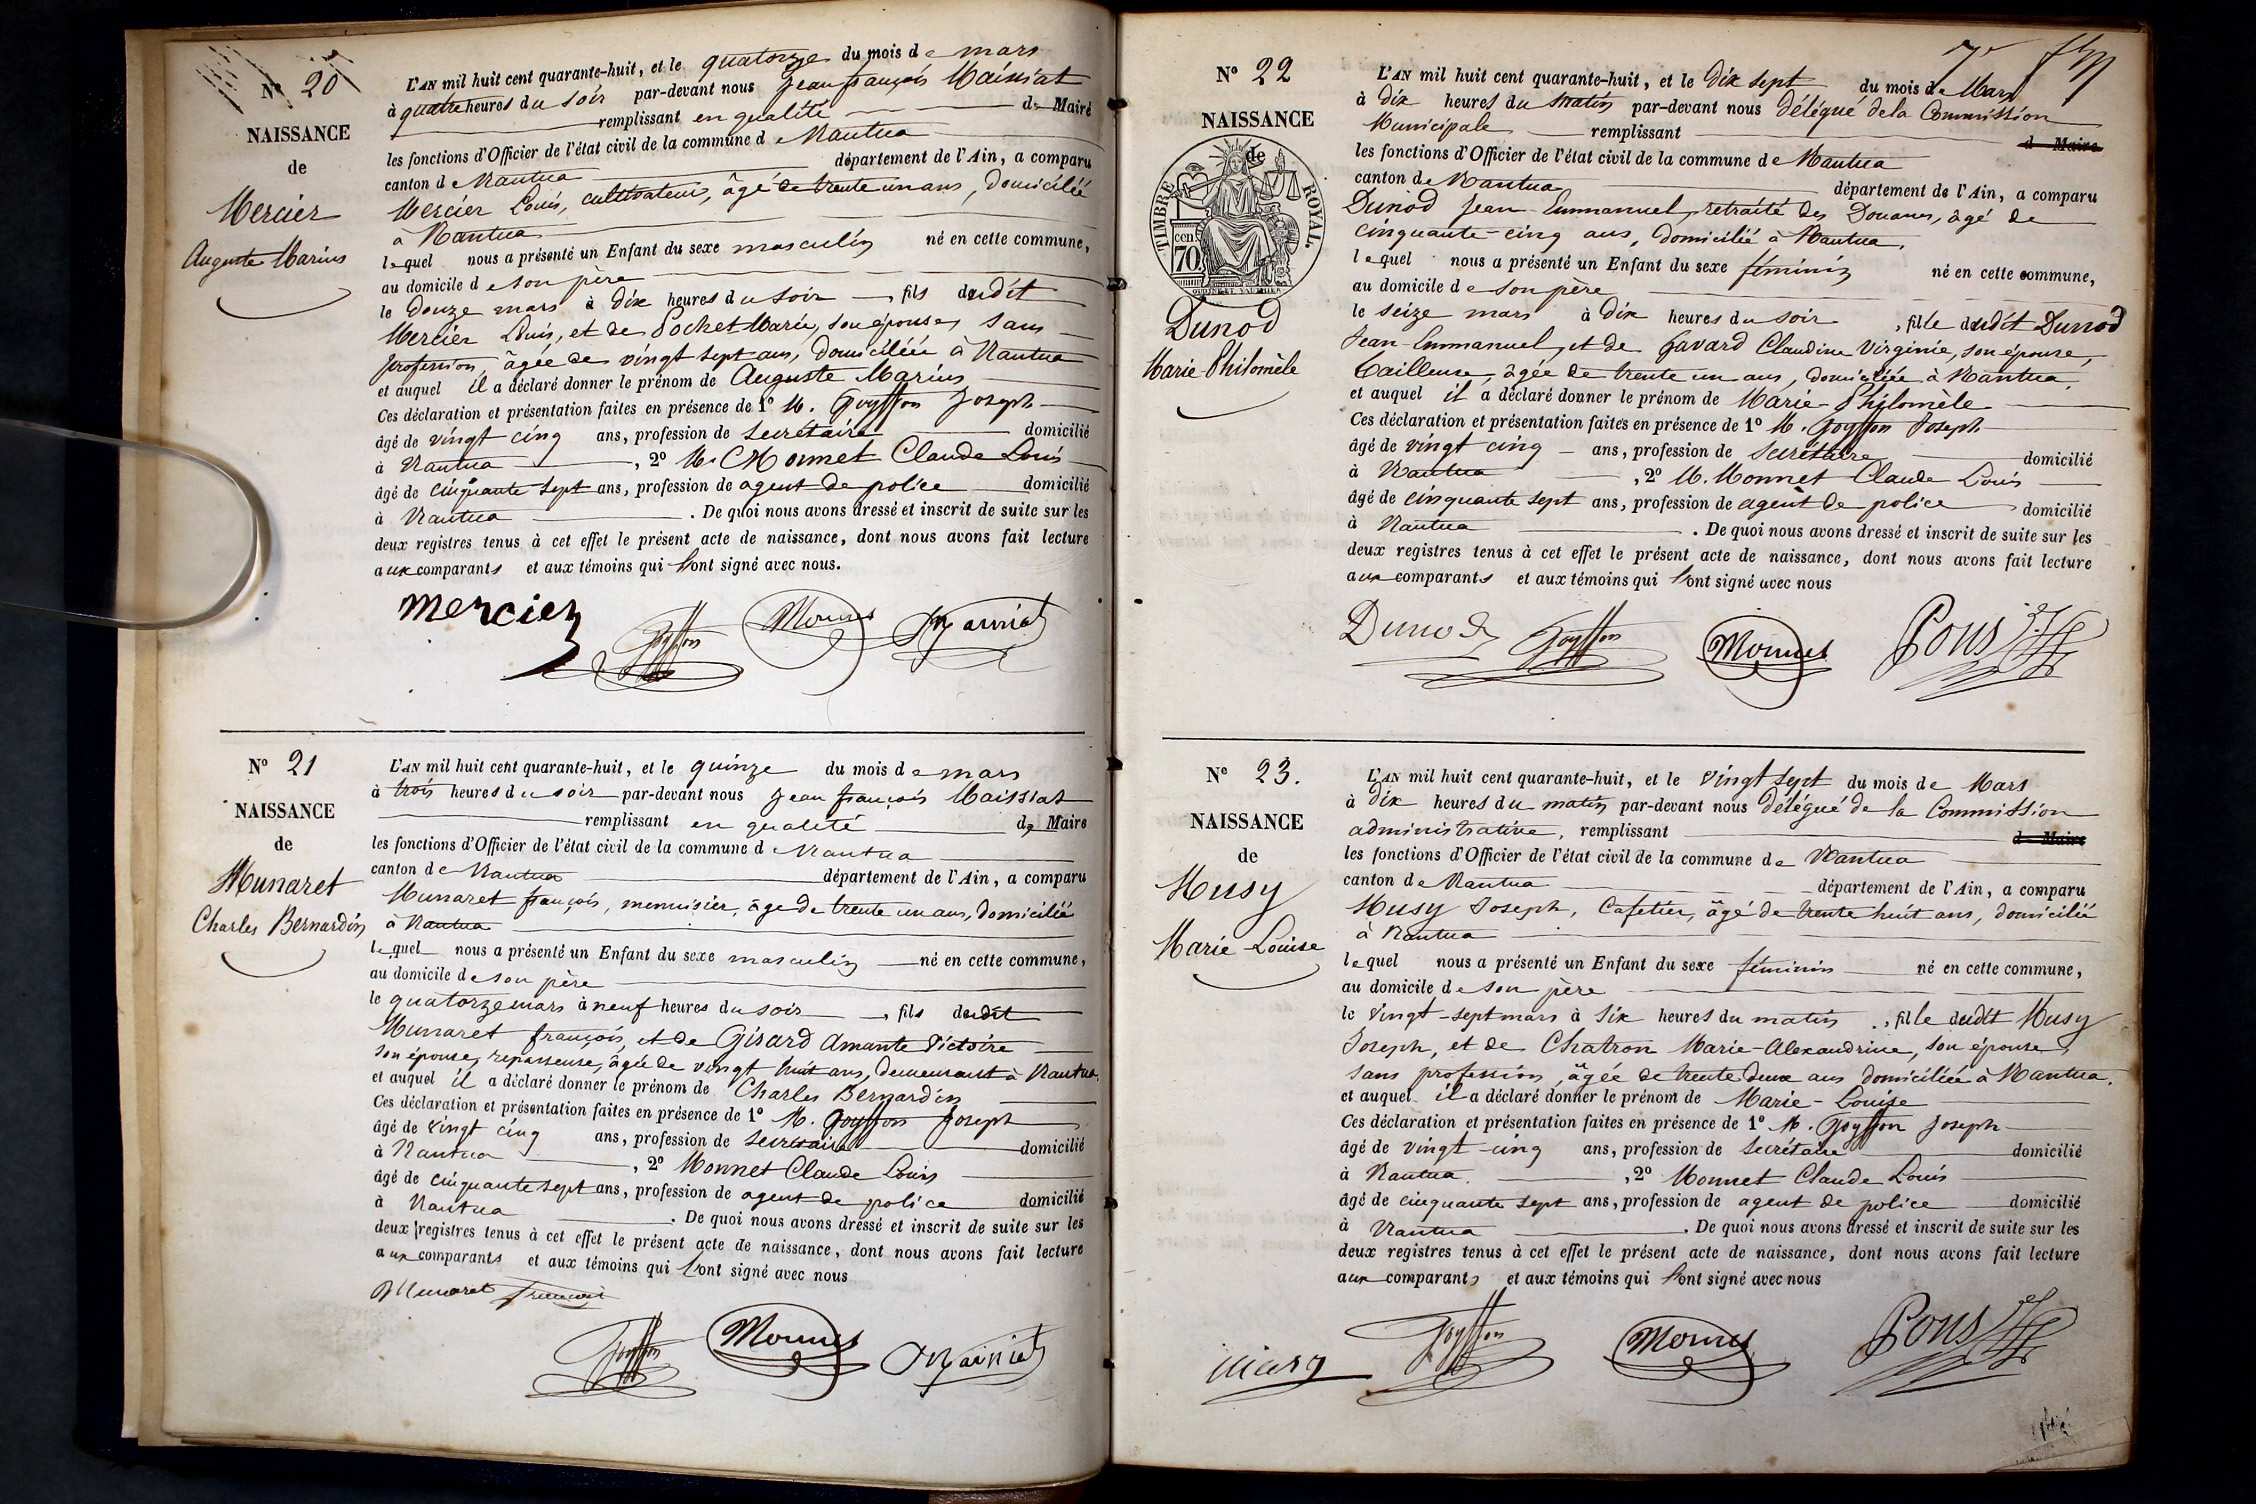 Nº 20
NAISSANCE
de
Mercier
Auguste Marius
L'AN mil huit cent quarante-huit, et le quatorze du mois de mars
à quatre heures du soir par-devant nous Jean françois Maissiat
remplissant en qualité de Maire
les fonctions d'Officier de l'état civil de la commune de Nantua
canton de Nantua département de l'Ain, a comparu
Mercier Louis, cultivateur, âgé de trente un ans, domicilié
à Nantua
lequel nous a présenté un Enfant du sexe masculin né en cette commune,
au domicile de son père
le douze mars à dix heures du soir, fils dudit
Mercier Louis, et de Pochet Marie, son épouse, sans
profession, âgée de vingt sept ans, domiciliée à Nantua
et auquel il a déclaré donner le prénom de Auguste Marius
Ces déclaration et présentation faites en présence de 1º M. Goyffon Joseph
âgé de vingt cinq ans, profession de secrétaire domicilié
à Nantua, 2º M. Monnet Claude Louis
âgé de cinquante sept ans, profession de agent de police domicilié
à Nantua. De quoi nous avons dressé et inscrit de suite sur les
deux registres tenus à cet effet le présent acte de naissance, dont nous avons fait lecture
aux comparants et aux témoins qui l'ont signé avec nous.
Mercier Goyffon Monnet Maissiat
Nº 21
NAISSANCE
de
Munaret
Charles Bernardin
L'AN mil huit cent quarante-huit, et le quinze du mois de mars
à trois heures du soir par-devant nous Jean françois Maissiat
remplissant en qualité de Maire
les fonctions d'Officier de l'état civil de la commune de Nantua
canton de Nantua département de l'Ain, a comparu
Munaret françois, menuisier, âgé de trente un ans, domicilié
à Nantua
lequel nous a présenté un Enfant du sexe masculin né en cette commune,
au domicile de son père
le quatorze mars à neuf heures du soir, fils dudit
Munaret françois, et de Girard Amante Victoire
son épouse, repasseuse, âgée de vingt huit ans, demeurant à Nantua,
et auquel il a déclaré donner le prénom de Charles Bernardin
Ces déclaration et présentation faites en présence de 1º M. Goyffon Joseph
âgé de vingt cinq ans, profession de secrétaire domicilié
à Nantua, 2º Monnet Claude Louis
âgé de cinquante sept ans, profession de agent de police domicilié
à Nantua. De quoi nous avons dressé et inscrit de suite sur les
deux registres tenus à cet effet le présent acte de naissance, dont nous avons fait lecture
aux comparants et aux témoins qui l'ont signé avec nous
Munaret françois
Goyffon Monnet Maissiat
Nº 22
NAISSANCE
de
TIMBRE ROYAL.
cen
70
Dunod
Marie Philomèle
L'AN mil huit cent quarante-huit, et le dix sept du mois de Mars
à dix heures du matin par-devant nous délégué de la Commission
Municipale remplissant de Maire
les fonctions d'Officier de l'état civil de la commune de Nantua
canton de Nantua département de l'Ain, a comparu
Dunod Jean Emmanuel, retraité des Douanes, âgé de
cinquante-cinq ans, domicilié à Nantua,
lequel nous a présenté un Enfant du sexe féminin né en cette commune,
au domicile de son père
le seize mars à dix heures du soir, fille dudit Dunod
Jean-Emmanuel, et de Gavard Claudine Virginie, son épouse,
tailleuse, âgée de trente un ans, domiciliée à Nantua,
et auquel il a déclaré donner le prénom de Marie-Philomèle
Ces déclaration et présentation faites en présence de 1º M. Goyffon Joseph
âgé de vingt cinq ans, profession de secrétaire domicilié
à Nantua, 2º M. Monnet Claude Louis
âgé de cinquante sept ans, profession de agent de police domicilié
à Nantua. De quoi nous avons dressé et inscrit de suite sur les
deux registres tenus à cet effet le présent acte de naissance, dont nous avons fait lecture
aux comparants et aux témoins qui l'ont signé avec nous
Dunod Goyffon Monnet Pons
Nº 23.
NAISSANCE
de
Musy
Marie-Louise
L'AN mil huit cent quarante-huit, et le vingt sept du mois de Mars
à dix heures du matin par-devant nous délégué de la Commission
administrative, remplissant de Maire
les fonctions d'Officier de l'état civil de la commune de Nantua
canton de Nantua département de l'Ain, a comparu
Musy Joseph, Cafetier, âgé de trente huit ans, domicilié
à Nantua
lequel nous a présenté un Enfant du sexe féminin né en cette commune,
au domicile de son père
le vingt-sept mars à six heures du matin, fille dudit Musy
Joseph, et de Chatron Marie-Alexandrine, son épouse,
sans profession, âgée de trente deux ans domiciliée à Nantua.
et auquel il a déclaré donner le prénom de Marie-Louise
Ces déclaration et présentation faites en présence de 1º M. Goyffon Joseph
âgé de vingt-cinq ans, profession de secrétaire domicilié
à Nantua, 2º Monnet Claude Louis
âgé de cinquante sept ans, profession de agent de police domicilié
à Nantua. De quoi nous avons dressé et inscrit de suite sur les
deux registres tenus à cet effet le présent acte de naissance, dont nous avons fait lecture
aux comparants et aux témoins qui l'ont signé avec nous
Musy Goyffon Monnet Pons